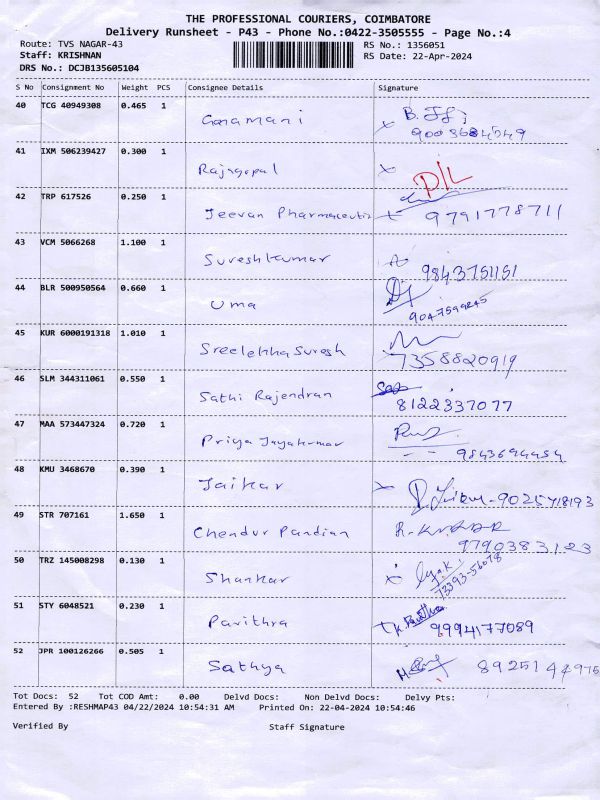 THE PROFESSIONAL COURIERS, COIMBATORE
Delivery Runsheet - P43 - Phone No.:0422-3505555 - Page No.:4
Route: TVS NAGAR-43 RS No.: 1356051
Staff: KRISHNAN RS Date: 22-Apr-2024
DRS No.: DCJB135605104
S No Consignment No Weight PCS Consignee Details Signature
40 TCG 40949308 0.465 1
41 IXM 506239427 0.300 1 Rajagopal D/L
42 TRP 617526 0.250 1 Jeevan 9791778711
43 VCM 5066268 1.100 1 Sureshkumar 9843751151
44 BLR 500950564 0.660 1 Uma
45 KUR 6000191318 1.010 1 Sreelekha Suresh 7358820919
46 SLM 344311061 0.550 1 Sathi Rajendran 8122337077
47 MAA 573447324 0.720 1 Priya Jayakumar
48 KMU 3468670 0.390 1 Jaikar
49 STR 707161 1.650 1 Chendur Pandian 9790383123
50 TRZ 145008298 0.130 1 Shankar 73393-56078
51 STY 6048521 0.230 1 Pavithra 9994177089
52 JPR 100126266 0.505 1 Sathya 8925144975
Tot Docs: 52 Tot COD Amt: 0.00 Delvd Docs: Non Delvd Docs: Delvy Pts:
Entered By :RESHMAP43 04/22/2024 10:54:31 AM Printed On: 22-04-2024 10:54:46
Verified By Staff Signature